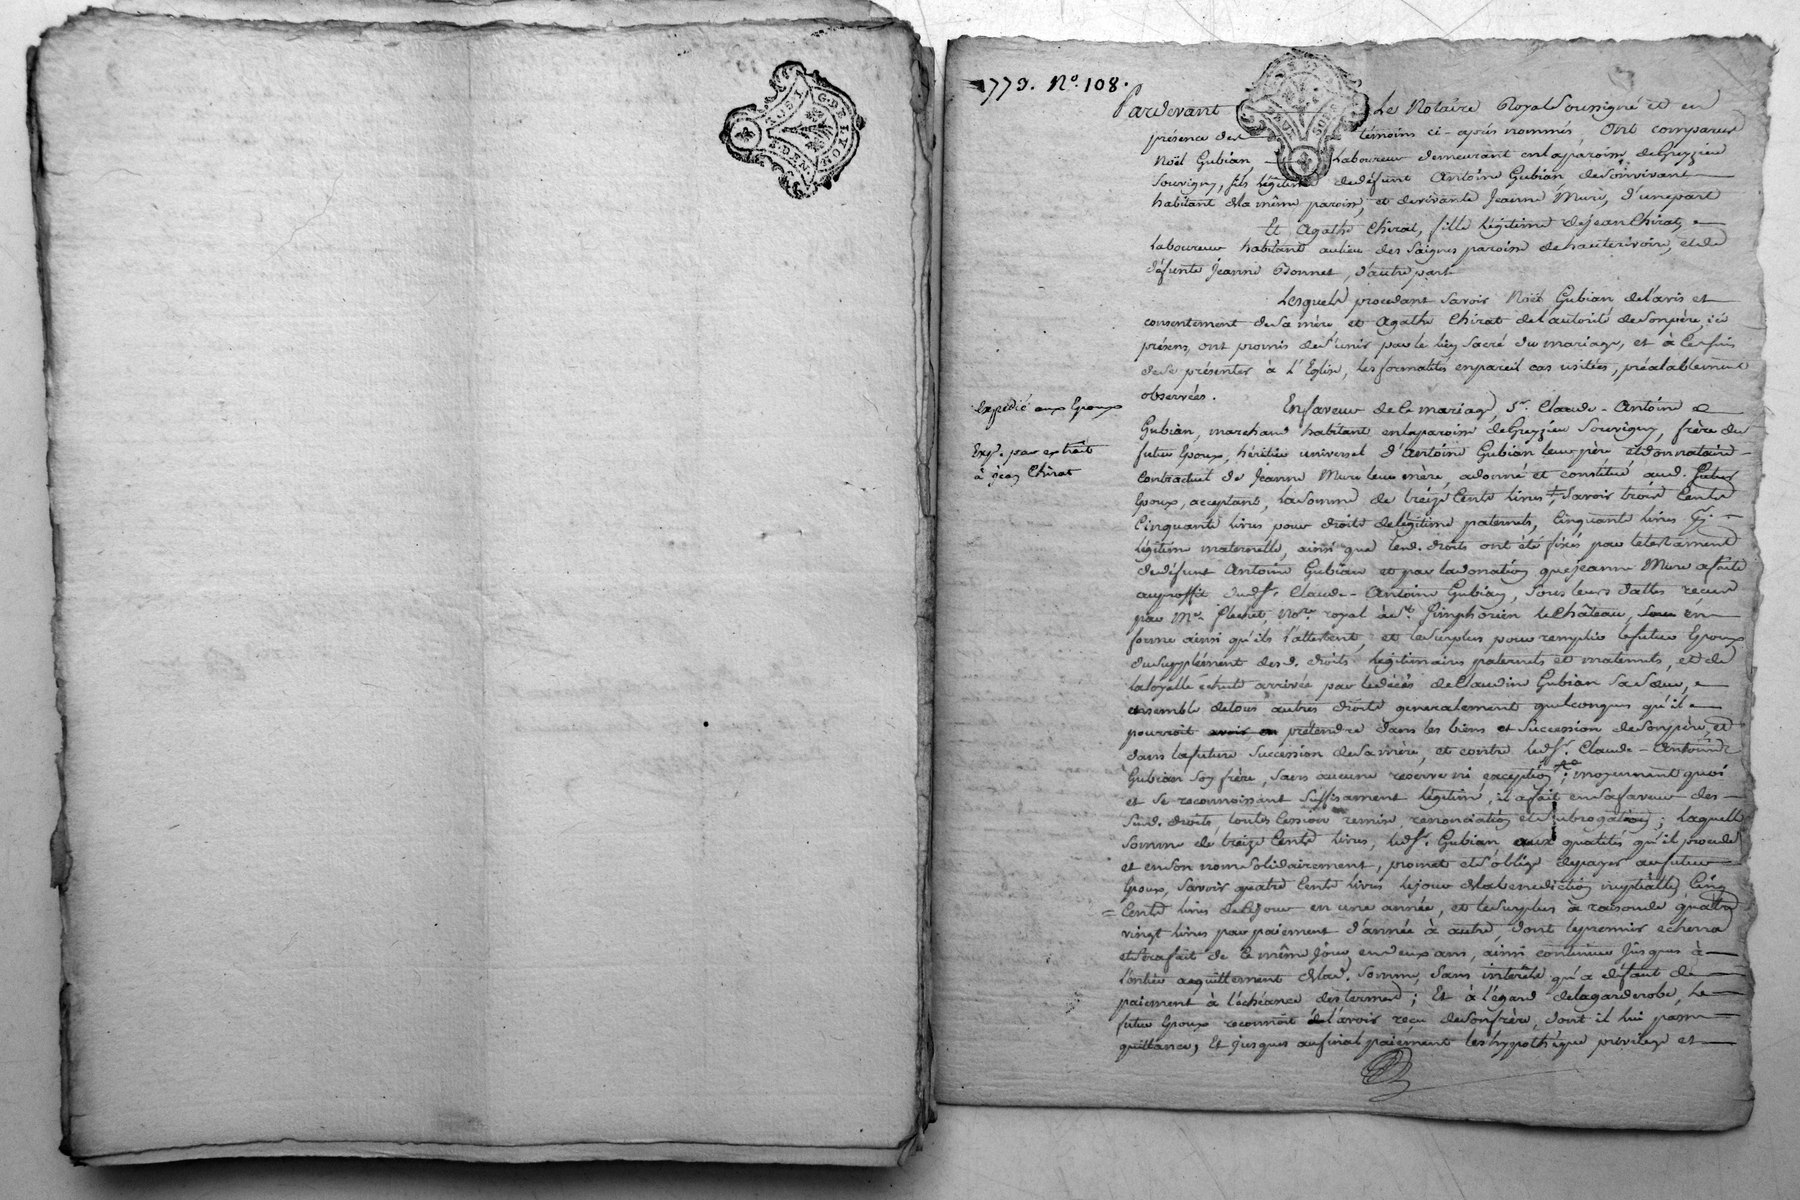 G. DE LYON
2 S. DEN.
1779. No. 108.
Pardevant Le Notaire Royal Soussigné et en
présence des témoins ci-après nommés, Ont comparus
Noël Gubian Laboureur demeurant en la paroisse de Grezieu
Souvigny, fils légitime de défunt Antoine Gubian de son vivant
habitant de la même paroisse, et de vivante Jeanne Mure, d'une part
Et Agathe Chirat, fille légitime de Jean Chirat,
Laboureur habitant au lieu des Saignes paroisse de hauterivoire, et de
défunte Jeanne Bonnet, d'autre part
Lesquels procedant Savoir Noël Gubian de l'avis et
consentement de sa mère, et Agathe Chirat de l'autorité de son père, ici
présens, ont promis de s'unir par le lien Sacré du mariage, et à ces fins
de se présenter à l'Eglise, les formalités en pareil cas usitées, préalablement
observées.
Expédié aux Epoux
Exp. par extrait
à Jean Chirat
En faveur de ce mariage, Sr. Claude-Antoine
Gubian, marchand habitant en la paroisse de Grezieu Souvigny, frère du
futur Epoux, héritier universel d'Antoine Gubian leur père et donnataire
Contractuel de Jeanne Mure leur mère, a donné et constitué aud. futur
Epoux, acceptant, la somme de treize Cents livres, Savoir trois Cents
Cinquante livres pour droits de légitime paternels, Cinquante livres
légitime maternelle, ainsi que lesd. droits ont été fixés par le testament
de défunt Antoine Gubian et par la donation que Jeanne Mure a faite
au proffit dud. Sr. Claude-Antoine Gubian, sous leurs dattes reçues
par Me. Flechet, Nore. royal à St. Simphorien le Château, en
forme ainsi qu'ils l'attestent, et le surplus pour remplir le futur Epoux
du supplément desd. droits légitimaires paternels et maternels, et de
la loyalle échute arrivée par le décès de Claudine Gubian sa sœur,
ensemble de tous autres droits generalement quelconques qu'il
pourroit prétendre dans les biens et succession de son père, et
dans la future succession de sa mère, et contre led. Sr. Claude-Antoine
Gubian son frère, sans aucune reserve ni exception; moyennant quoi
et se reconnoissant suffisament légitimé, il a fait en sa faveur des
susd. droits toutes cession remise renonciation et subrogation; laquelle
somme de treize Cents livres, led. Sr. Gubian aux qualités qu'il procede
et en son nom solidairement, promet et s'oblige de payer au futur
Epoux, Savoir quatre Cents livres le jour de la benediction nuptialle, Cinq
Cents livres de ce jour en une année, et le surplus à raison de quatre
vingt livres par paiement d'année à autre, dont le premier echerra
et se fait de ce même jour en deux ans, ainsi continuer jusques à
l'entier acquittement de lad. somme, sans intérêts qu'a défaut de
paiement à l'échéance des termes; Et à l'égard de la garderobe, le
futur Epoux reconnoit l'avoir reçu de son frère, dont il lui passe
quittance, Et jusques au final paiement les hypothéque privilege et